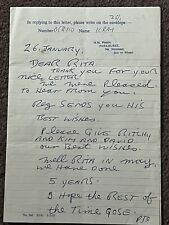 In replying to this letter, please write on the envelope:—
Number 058110 Name KRAY
H.M. PRISON
PARKHURST,
ISLE OF WIGHT
26 JANUARY,
DEAR RITA
THANK YOU FOR YOUR
NICE LETTER
WE WERE PLEASED
TO HEAR FROM YOU.
REG SENDS YOU HIS
BEST WISHES.
PLEASE GIVE RITCHIE,
AND KIM AND DAVID
OUR BEST WISHES.
WELL RITA IN MAY
WE HAVE DONE
5 YEARS.
I HOPE THE REST OF
THE TIME GOSE.
PTO